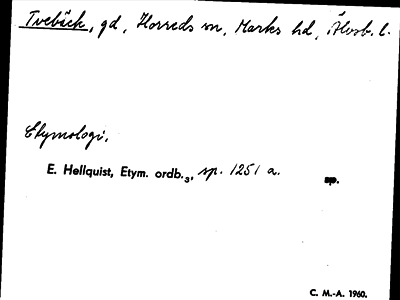 Tvebäck, gd, Horreds sn, Marks hd, Älvsb. l.
Etymologi.
E. Hellquist, Etym. ordb.₃, sp. 1251 a.
C. M.-A. 1960.